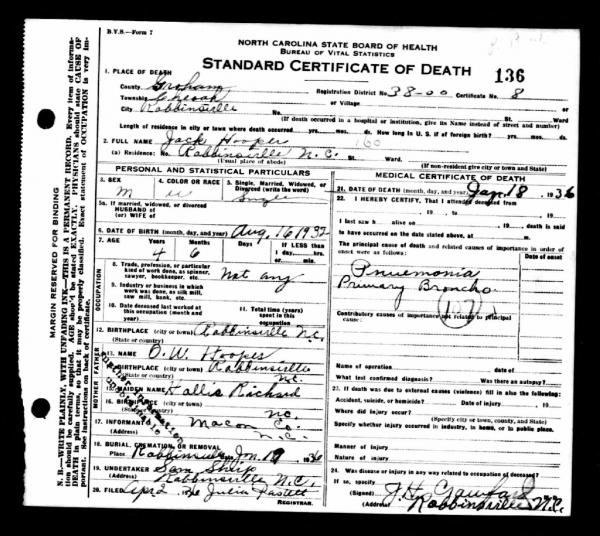 B.V.S.—Form 7
NORTH CAROLINA STATE BOARD OF HEALTH
BUREAU OF VITAL STATISTICS
STANDARD CERTIFICATE OF DEATH 136
1. PLACE OF DEATH
County Graham Registration District No. 38-00 Certificate No. 8
Township Cheoah or Village
City Robbinsville No. St. Ward
(If death occurred in a hospital or institution, give its Name instead of street and number)
Length of residence in city or town where death occurred yrs. mos. ds. How long in U. S. if of foreign birth? yrs. mos. ds.
2. FULL NAME Jack Hooper 160
(a) Residence: No. Robbinsville N.C. St. Ward.
(Usual place of abode) (If non-resident give city or town and State)
PERSONAL AND STATISTICAL PARTICULARS
3. SEX M
4. COLOR OR RACE W
5. Single, Married, Widowed, or Divorced (write the word) Single
5a. If married, widowed, or divorced
HUSBAND of
(or) WIFE of
6. DATE OF BIRTH (month, day, and year) Aug, 16 1932
7. AGE 4 6 Days If LESS than
1 day, hrs.
or min.
OCCUPATION
8. Trade, profession, or particular
kind of work done, as spinner,
sawyer, bookkeeper, etc. Not any
9. Industry or business in which
work was done, as silk mill,
saw mill, bank, etc.
10. Date deceased last worked at
this occupation (month and
year)
11. Total time (years)
spent in this
occupation
12. BIRTHPLACE (city or town) Robbinsville N.C.
(State or country)
FATHER
13. NAME O. W. Hooper
14. BIRTHPLACE (city or town) Robbinsville
(State or country) N.C.
MOTHER
15. MAIDEN NAME Hallie Richard
16. BIRTHPLACE (city or town)
(State or country) N.C.
17. INFORMANT Macon Co.
(Address) N.C.
18. BURIAL, CREMATION, OR REMOVAL
Place Robbinsville Date Jan. 19 1936
19. UNDERTAKER
(Address) Robbinsville N.C.
20. FILED Apr 2 36 Julia
REGISTRAR.
MEDICAL CERTIFICATE OF DEATH
21. DATE OF DEATH (month, day, and year) Jan. 18, 1936
22. I HEREBY CERTIFY, That I attended deceased from
, 19 , to , 19
I last saw h alive on , 19 , death is said
to have occurred on the date stated above, at m.
The principal cause of death and related causes of importance in order of
onset were as follows: Date of onset
Pnuemonia
Primary Broncho
107
Contributory causes of importance not related to principal
cause:
Name of operation date of
What test confirmed diagnosis? Was there an autopsy?
23. If death was due to external causes (violence) fill in also the following:
Accident, suicide, or homicide? Date of injury 19
Where did injury occur?
(Specify city or town, county, and State)
Specify whether injury occurred in industry, in home, or in public place.
Manner of injury
Nature of injury
24. Was disease or injury in any way related to occupation of deceased?
If so, specify
(Signed)
(Address) Robbinsville N.C.
MARGIN RESERVED FOR BINDING
N. B.—WRITE PLAINLY, WITH UNFADING INK—THIS IS A PERMANENT RECORD. Every item of information should be carefully supplied. AGE should be stated EXACTLY. PHYSICIANS should state CAUSE OF DEATH in plain terms, so that it may be properly classified. Exact statement of OCCUPATION is very important. See instructions on back of certificate.